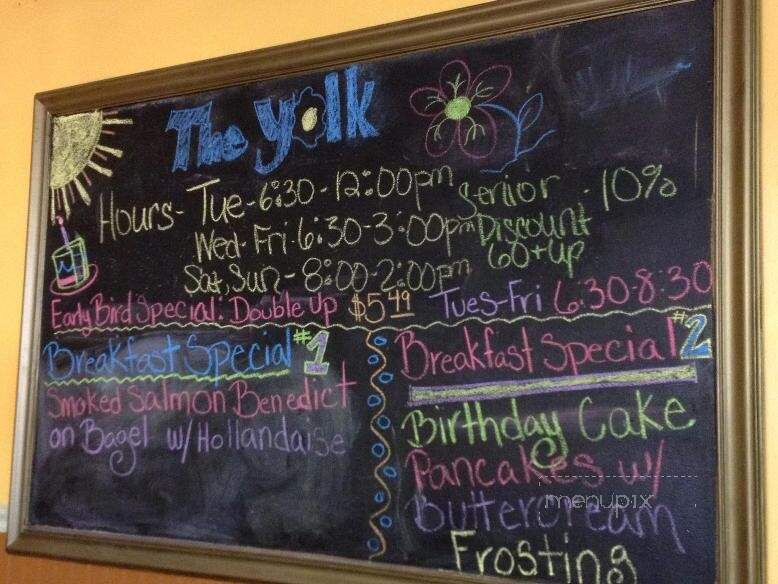 The Yolk
Hours- Tue-6:30-12:00pm
Wed-Fri-6:30-3:00pm
Sat, Sun-8:00-2:00pm
Senior -10%
Discount
60+up
Early Bird Special: Double Up $5.49 Tues-Fri 6:30-8:30
Breakfast Special #1
Smoked Salmon Benedict
on Bagel w/Hollandaise
Breakfast Special #2
Birthday Cake
Pancakes w/
Buttercream
Frosting
menupix